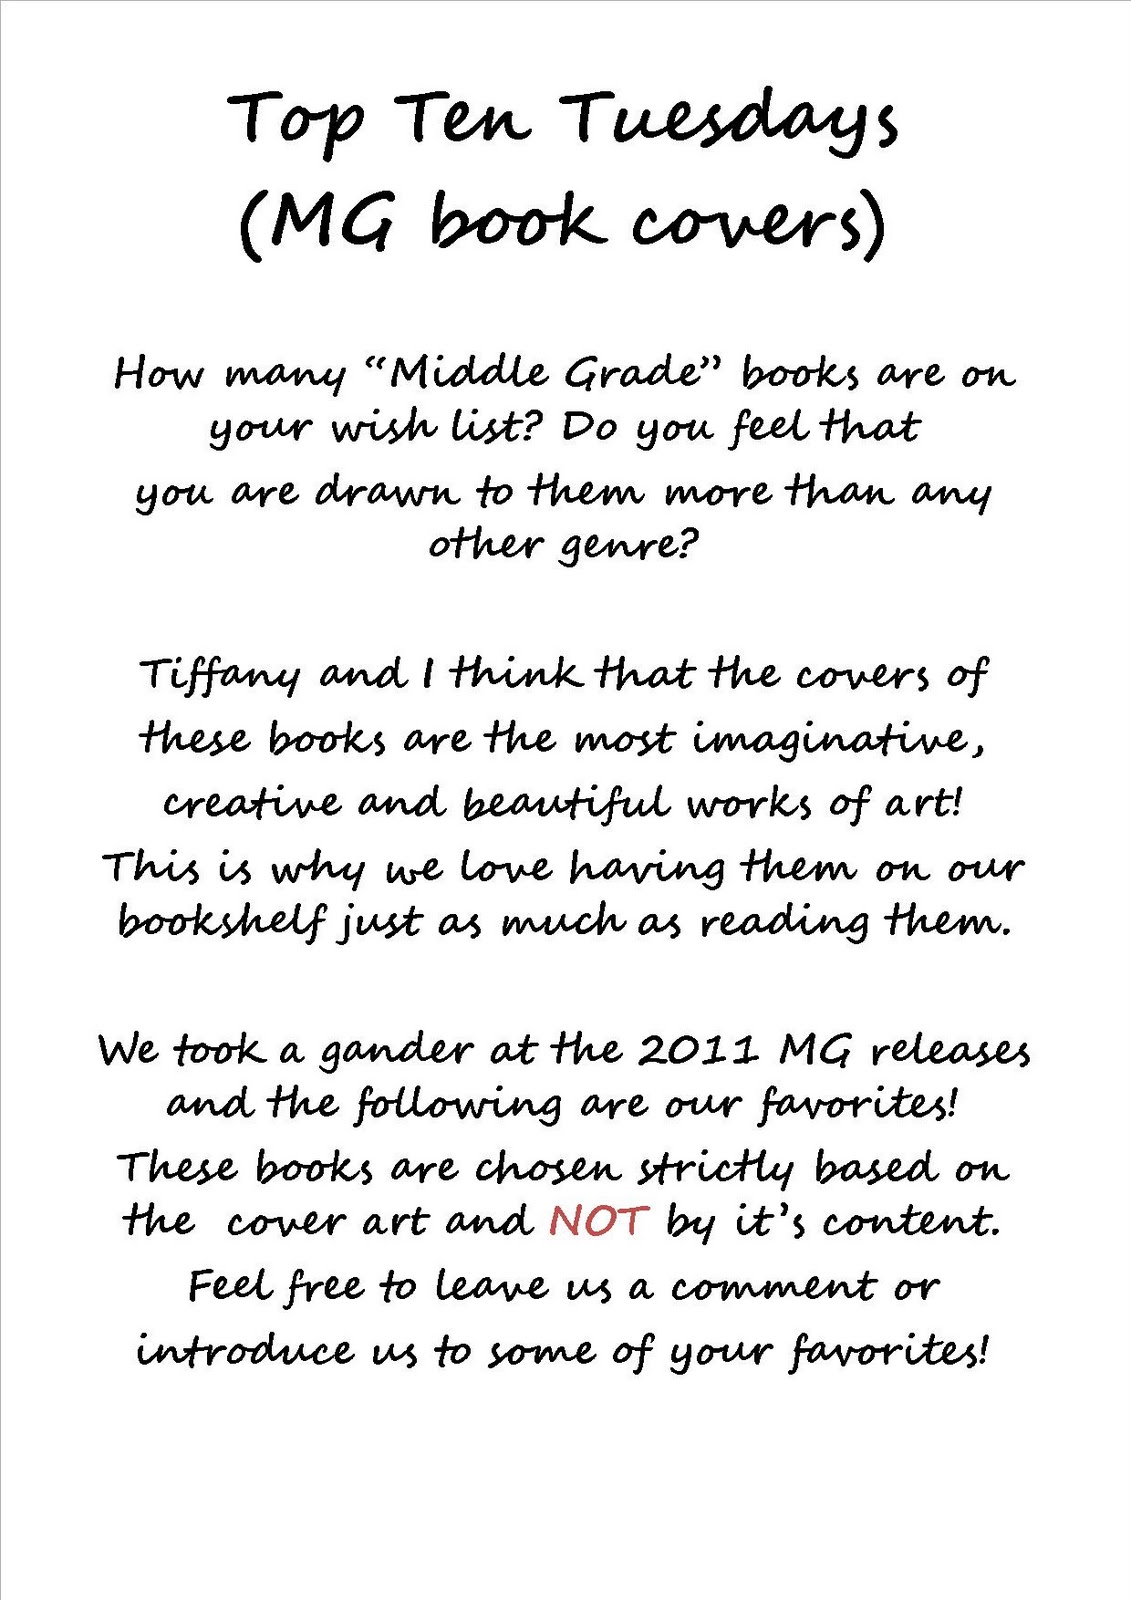 Top Ten Tuesdays
(MG book covers)
How many “Middle Grade” books are on
your wish list? Do you feel that
you are drawn to them more than any
other genre?
Tiffany and I think that the covers of
these books are the most imaginative,
creative and beautiful works of art!
This is why we love having them on our
bookshelf just as much as reading them.
We took a gander at the 2011 MG releases
and the following are our favorites!
These books are chosen strictly based on
the cover art and NOT by it’s content.
Feel free to leave us a comment or
introduce us to some of your favorites!